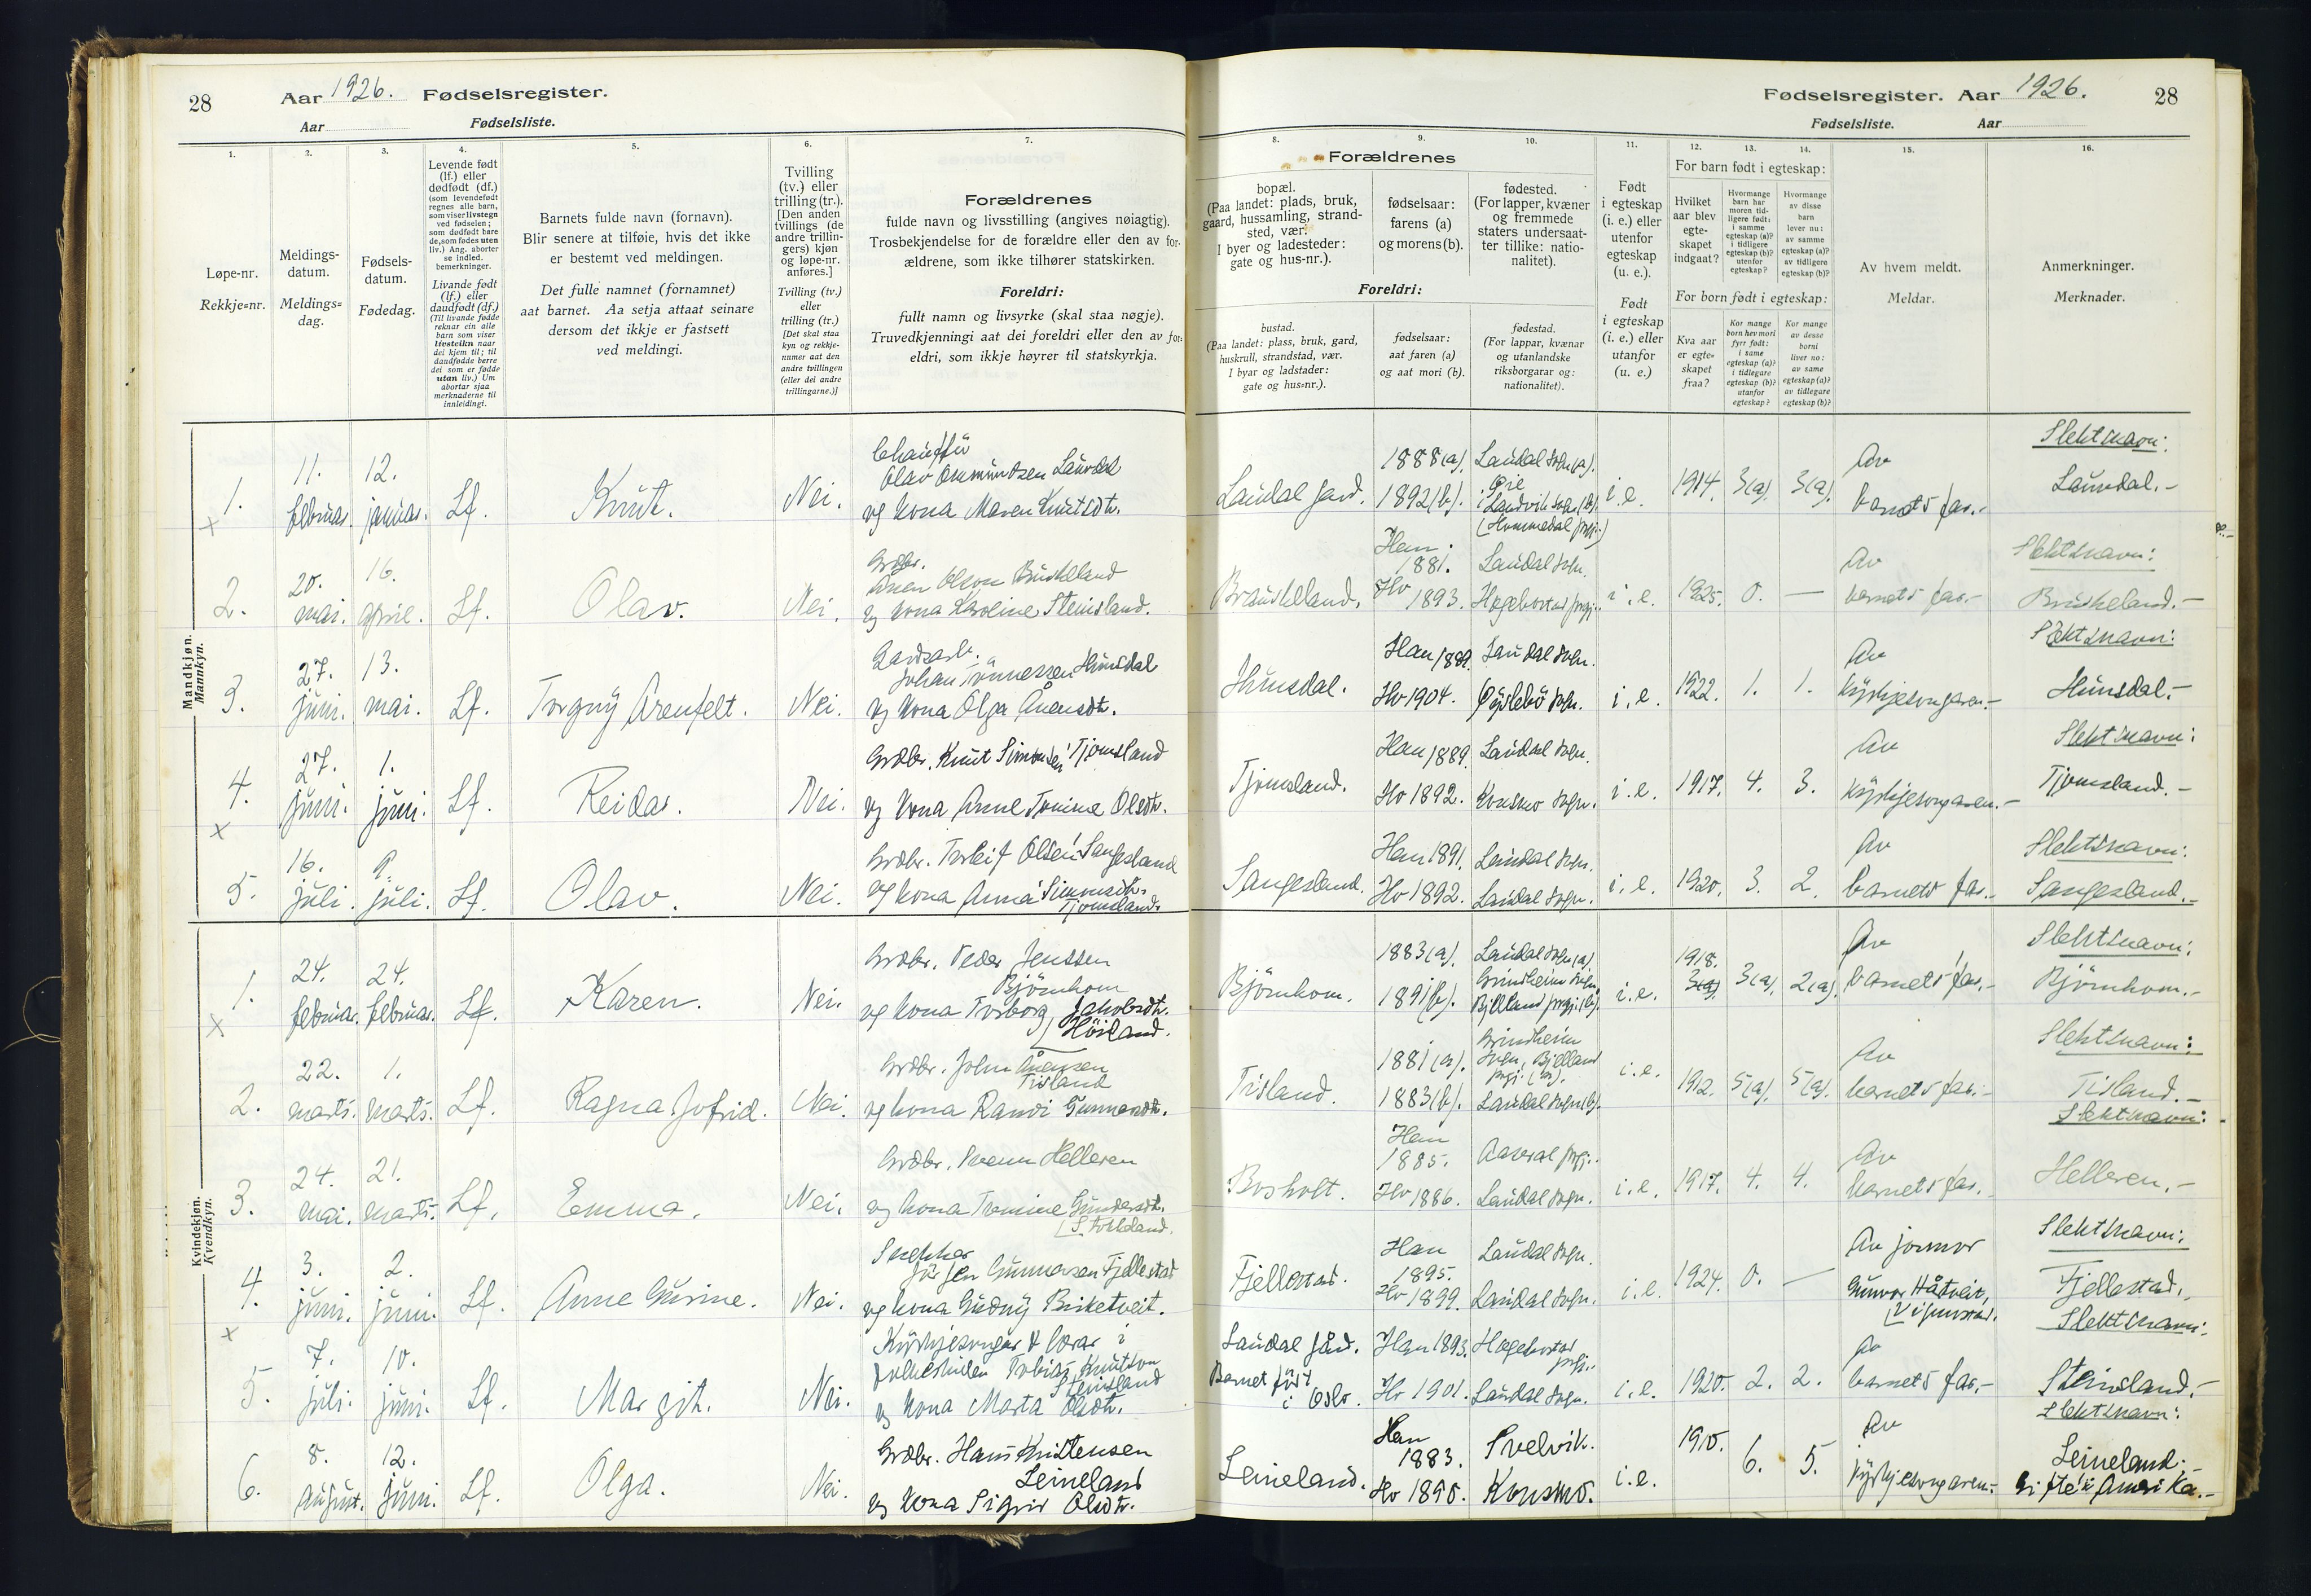 28
Aar 1926. Fødselsregister.
Aar Fødselsliste.
Fødselsregister. Aar 1926.
28
Fødselsliste. Aar
1. 2. 3. 4. 5. 6. 7.
Løpe-nr.
Rekkje=nr.
Meldings-
datum.
Meldings=
dag.
Fødsels-
datum.
Fødedag.
Levende født
(lf.) eller
dødfødt (df.)
(som levendefødt
regnes alle barn,
som viser livstegn
ved fødselen;
som dødfødt bare
de, som fødes uten
liv.) Ang. aborter
se indled.
bemerkninger.
Livande født
(lf.) eller
daudfødt (df.)
(Til livande fødde
reknar ein alle
barn som viser
livsteikn naar
dei kjem til; til
daudfødde berre
dei som er fødde
utan liv.) Um
abortar sjaa
merknaderne til
innleidingi.
Barnets fulde navn (fornavn).
Blir senere at tilføie, hvis det ikke
er bestemt ved meldingen.
Det fulle namnet (fornamnet)
aat barnet. Aa setja attaat seinare
dersom det ikkje er fastsett
ved meldingi.
Tvilling
(tv.) eller
trilling (tr.).
[Den anden
tvillings (de
andre trillin-
gers) kjøn
og løpe-nr.
anføres.]
Tvilling (tv.)
eller
trilling (tr.)
[Det skal staa
kyn og rekkje-
numer aat den
andre tvillingen
(eller dei andre
trillingarne.)]
Forældrenes
fulde navn og livsstilling (angives nøiagtig).
Trosbekjendelse for de forældre eller den av for-
ældrene, som ikke tilhører statskirken.
Foreldri:
fullt namn og livsyrke (skal staa nøgje).
Truvedkjenningi aat dei foreldri eller den av for-
eldri, som ikkje høyrer til statskyrkja.
8. 9. 10. 11. 12. 13. 14. 15. 16.
Forældrenes
bopæl.
(Paa landet: plads, bruk,
gaard, hussamling, strand-
sted, vær.
I byer og ladesteder:
gate og hus-nr.).
fødselsaar:
farens (a)
og morens (b).
fødested.
(For lapper, kvæner
og fremmede
staters undersaat-
ter tillike: natio-
nalitet).
Foreldri:
bustad.
(Paa landet: plass, bruk, gard,
huskrull, strandstad, vær.
I byar og ladstader:
gate og hus=nr.).
fødselsaar:
aat faren (a)
og aat mori (b).
fødestad.
(For lappar, kvænar
og utanlandske
riksborgarar og:
nationalitet).
Født
i egteskap
(i. e.) eller
utenfor
egteskap
(u. e.).
Født
i egteskap
(i. e.) eller
utanfor
(u. e.)
For barn født i egteskap:
Hvilket
aar blev
egte-
skapet
indgaat?
Hvormange
barn har
moren tid-
ligere født:
i samme
egteskap (a)?
i tidligere
egteskap (b)?
utenfor
egteskap?
Hvormange
av disse
barn
lever nu:
av samme
egteskap (a)?
av tidligere
egteskap (b)?
For born født i egteskap:
Kva aar
er egte=
skapet
fraa?
Kor mange
born hev mori
fyrr født:
i same
egteskap (a)?
i tidlegare
egteskap (b)?
utanfor
egteskap?
Kor mange
av desse
borni
liver no:
av same
egteskap (a)?
av tidlegare
egteskap (b)?
Av hvem meldt.
Meldar.
Anmerkninger.
Merknader.
Mandkjøn.
Mannkyn.
1. 11. februar. 12. januar. Lf. Knut. Nei.
Olav Ommundsen Laudal
og kona Maren Knutsdtr.
Laudal gard. 1888(a). 1892(b). Laudal sogn(a).
i. e. 1914. 3(a). 3(a). Av barnets far.-
Slektsnavn: Laudal.-
2. 20. mai. 16. april. Lf. Olav. Nei.
Grdbr.
og kona Karoline Steinsland.
Han 1881. Ho 1893. Laudal sogn.
i. e. 1925. 0. — Av barnets far.-
Slektsnavn:
3. 27. juni. 13. mai. Lf. Torgny Arenfelt. Nei.
Johan Tönnessen Hunsdal
og kona Olga Ånensdtr.
Hunsdal. Han 1889. Ho 1904. Laudal sogn. Øyslebö sogn.
i. e. 1922. 1. 1. Av kyrkjesongaren.-
Slektsnavn: Hunsdal.-
4. 27. juni. 1. juni. Lf. Reidar. Nei.
Grdbr. Knut Simonsen Tjomsland
og kona Anne Tomine Olsdtr.
Tjomsland. Han 1889. Ho 1892. Laudal sogn. Konsmo sogn.
i. e. 1917. 4. 3. Av kyrkjesongaren.-
Slektsnavn: Tjomsland.-
5. 16. juli. 9. juli. Lf. Olav. Nei.
Grdbr. Torleif Olsen Sangesland
og kona Anna Simonsdtr. Tjomsland.
Sangesland. Han 1891. Ho 1892. Laudal sogn. Laudal sogn.
i. e. 1920. 3. 2. Av barnets far.-
Slektsnavn: Sangesland.-
Kvindekjøn.
Kvendkyn.
1. 24. februar. 24. februar. Lf. Karen. Nei.
Grdbr. Peder Jenssen Björnhom
og kona Torborg Jakobsdtr. Höiland.
Björnhom. 1883(a). 1891(b). Laudal sogn(a). Grindheim sogn, Bjelland prgj.(b).
i. e. 1918. 3(a). 3(a). 2(a). Av barnets far.-
Slektsnavn: Björnhom.-
2. 22. marts. 1. marts. Lf. Ragna Jofrid. Nei.
Grdbr. John Ånensen Tisland
og kona Randi Gunnarsdtr.
Tisland. 1881(a). 1883(b). Grindheim sogn, Bjelland prgj.(a). Laudal sogn(b).
i. e. 1912. 5(a). 5(a). Av barnets far.-
Slektsnavn: Tisland.-
3. 24. mai. 21. marts. Lf. Emma. Nei.
Grdbr. Helleren
og kona Tomine Gundersdtr.
Bosholt. Han 1885. Ho 1886. Aaseral prgj. Laudal sogn.
i. e. 1917. 4. 4. Av barnets far.
Slektsnavn: Helleren.-
4. 3. juni. 2. juni. Lf. Anne Gurine. Nei.
Snekker
Jörgen Gunnarsen Fjellestad
og kona Gudny Birketveit.
Fjellestad. Han 1895. Ho 1899. Laudal sogn. Laudal sogn.
i. e. 1924. 0. — Av jormor
Gunvor Håtveit,
Slektsnavn: Fjellestad.
5. 7. juli. 10. juni. Lf. Margit. Nei.
Kyrkjesongar & lærar i
folkeskulen Tobias Knutson
Steinsland
og kona Marta Olsdtr.
Laudal gård. Barnet födt i Oslo.
Han 1893. Ho 1901. Hægebostad prgj. Laudal sogn.
i. e. 1920. 2. 2. Av barnets far.-
Slektsnavn: Steinsland.-
6. 8. august. 12. juni. Lf. Olga. Nei.
Grdbr. Hans Kristensen
Leineland
og kona Sigrid Olsdtr.
Leineland. Han 1883. Ho 1890. Svelvik. Konsmo.
i. e. 1910. 6. 5. Av kyrkjesongaren.-
Slektsnavn: Leineland.-
Amerika.-